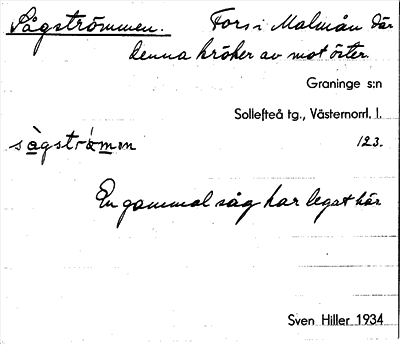 Sågströmmen. Fors i Malmån där
denna kröker av mot öster.
Graninge s:n
Sollefteå tg., Västernorrl. l.
sågstrǻmen 123.
En gammal såg har legat här
Sven Hiller 1934